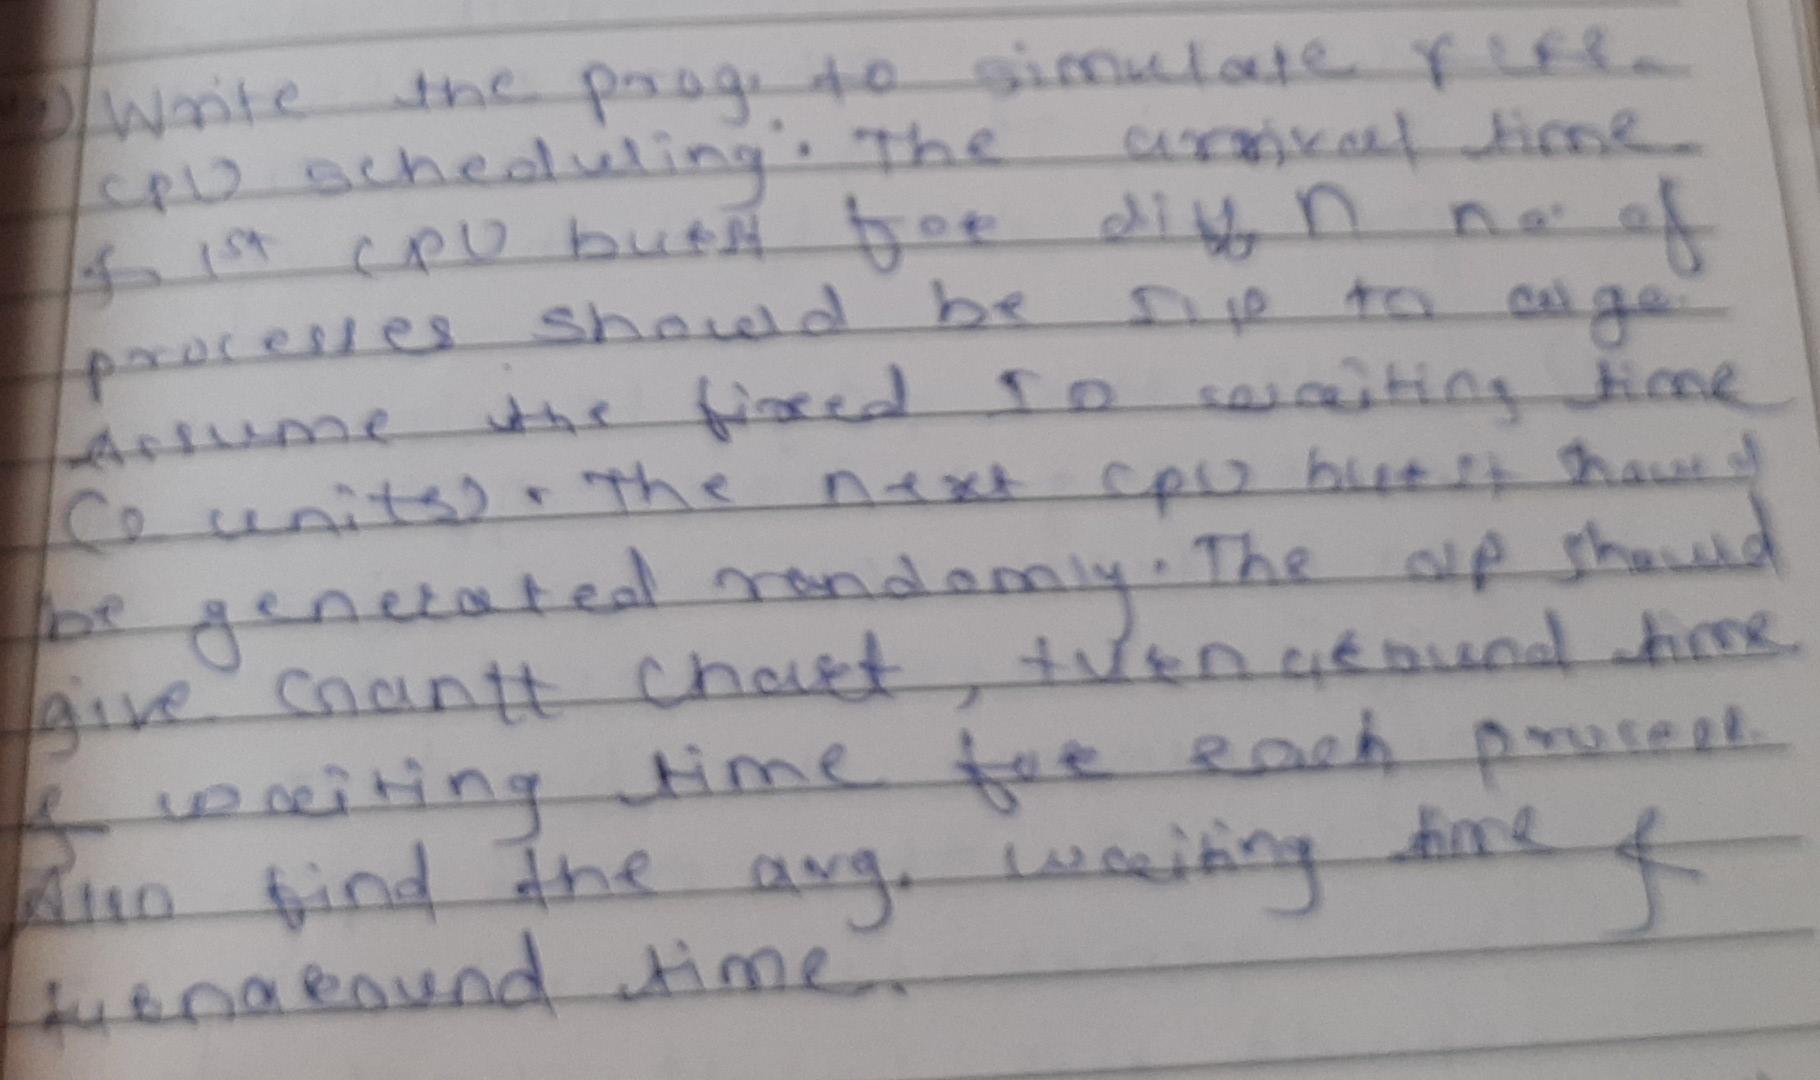 Write the prog. to simulate FCFS
CPU scheduling. The arrival time
& 1st CPU burst for diff n no. of
processes should be i/p to algo.
Assume the fixed IO waiting time
(2 units). The next CPU burst should
be generated randomly. The o/p should
give Gnantt chart, turnaround time
& waiting time for each process.
Also find the avg. waiting time &
turnaround time.